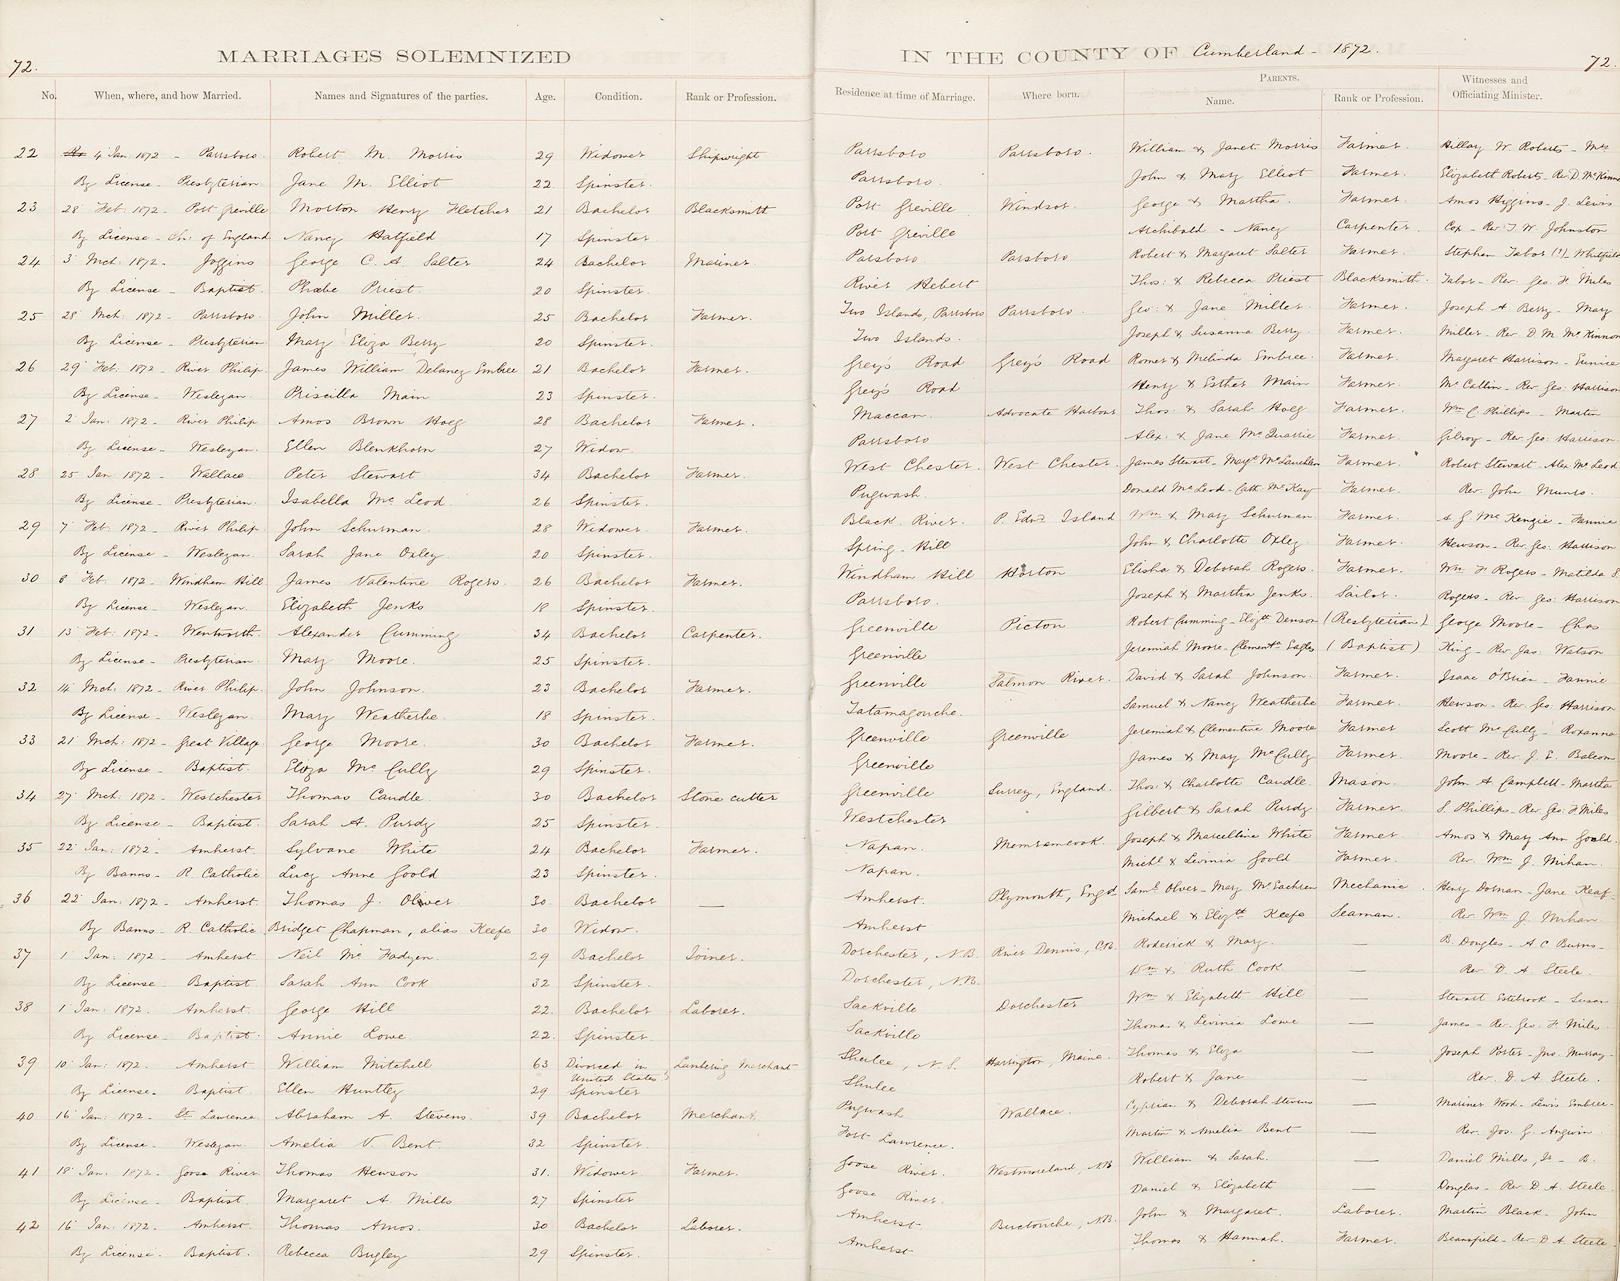 72. MARRIAGES SOLEMNIZED IN THE COUNTY OF Cumberland - 1872. 72.
No. When, where, and how Married. Names and Signatures of the parties. Age. Condition. Rank or Profession. Residence at time of Marriage. Where born. PARENTS. Name. Rank or Profession. Witnesses and Officiating Minister.
22 4 Jan. 1872 - Parrsboro. Robert M. Morris 29 Widower Shipwright Parrsboro Parrsboro. William & Janet Morris Farmer. Hillary W. Roberts - Mrs
By License - Presbyterian Jane M. Elliot 22 Spinster. Parrsboro. John & Mary Elliot Farmer. Elizabeth Roberts - Rev D. McKinnon
23 28 Feb. 1872 - Port Greville Morton Henry Fletcher 21 Bachelor Blacksmith Port Greville Windsor. George & Martha. Farmer. Amos Higgins - J. Lewis
By License - Ch. of England Nancy Hatfield 17 Spinster Port Greville Archibald - Nancy Carpenter. Cox - Rev. T. W. Johnston
24 3 Mch. 1872 - Joggins George C. A. Salter 24 Bachelor Mariner. Parsboro. Parsboro Robert & Margaret Salter Farmer. Stephen Tabor (?) Whitfield
By License - Baptist. Phœbe Priest. 20 Spinster. River Hebert Thos: & Rebecca Priest Blacksmith. Tabor - Rev. Geo. F Miles
25 28 Mch. 1872 - Parrsboro. John Miller. 25 Bachelor Farmer. Two Islands, Parrsboro Parrsboro. Geo: & Jane Miller. Farmer. Joseph A Berry - Mary
By License - Presbyterian Mary Eliza Berry 20 Spinster. Two Islands. Joseph & Susanna Berry Farmer. Miller - Rev. D. M. McKinnon
26 29 Feb. 1872 - River Philip James William Delaney Embree 21 Bachelor Farmer. Grey's Road Grey's Road Romer & Melinda Embree. Farmer. Margaret Harrison - Eunice
By License - Wesleyan. Priscilla Main 23 Spinster. Grey's Road Henry & Esther Main Farmer. McCallin - Rev. Geo: Harrison
27 2 Jan: 1872 - River Philip Amos Brown Hoeg 28 Bachelor Farmer. Maccan. Advocate Harbour Thos: & Sarah Hoeg Farmer. Wm C Phillips - Martin
By License - Wesleyan. Ellen Blenkhorn 27 Widow. Parrsboro Alex: & Jane McQuarrie Farmer. Gilroy - Rev. Geo: Harrison.
28 25 Jan 1872 - Wallace Peter Stewart 34 Bachelor Farmer. West Chester. West Chester. James Stewart - Margt McLauchlan Farmer. Robert Stewart - Alex McLeod
By License - Presbyterian. Isabella McLeod. 26 Spinster. Pugwash. Donald McLeod - Cath. McKay Farmer. Rev. John Munro.
29 7 Feb. 1872 - River Philip. John Schurman. 28 Widower Farmer. Black River. P. Edwd Island Wm & Mary Schurman Farmer. A G. McKenzie - Fannie
By License - Wesleyan. Sarah Jane Oxley. 20 Spinster. Spring-Hill John & Charlotte Oxley Farmer. Hewson - Rev. Geo: Harrison
30 8 Feb. 1872 - Windham Hill James Valentine Rogers. 26 Bachelor Farmer. Windham Hill Horton Elisha & Deborah Rogers. Farmer. Wm F Rogers - Matilda S.
By License - Wesleyan. Elizabeth Jenks 18 Spinster. Parrsboro. Joseph & Martha Jenks. Sailor. Rogers - Rev. Geo: Harrison
31 13 Feb. 1872 - Wentworth. Alexander Cumming 34 Bachelor Carpenter. Greenville Picton Robert Cumming - Elizth Denson (Presbyterian) George Moore - Chas
By License - Presbyterian. Mary Moore. 25 Spinster. Greenville Jeremiah Moore - Clementn Eagles (Baptist) King - Rev. Jas: Watson
32 14 Mch: 1872 - River Philip. John Johnson. 23 Bachelor Farmer. Greenville Salmon River. David & Sarah Johnson. Farmer. Isaac O'Brien - Fannie
By License - Wesleyan. Mary Weatherbe. 18 Spinster. Tatamagouche. Samuel & Nancy Weatherbe Farmer. Hewson - Rev. Geo. Harrison
33 21 Mch: 1872 - Great Village George Moore. 30 Bachelor Farmer. Greenville Greenville Jeremiah & Clementine Moore Farmer Scott McCully - Roxanna
By License - Baptist. Eliza McCully 29 Spinster. Greenville James & Mary McCully Farmer. Moore - Rev. J. E. Balcom
34 27 Mch. 1872 - Westchester Thomas Caudle. 30 Bachelor Stone cutter Greenville Surrey, England. Thos: & Charlotte Caudle Mason. John A Campbell - Martha
By License - Baptist. Sarah A. Purdy 25 Spinster. Westchester Gilbert & Sarah Purdy Farmer. S Phillips - Rev. Geo. F Miles
35 22 Jan: 1872 - Amherst. Sylvane White 24 Bachelor Farmer. Napan. Memramcook. Joseph & Marcelline White Farmer. Amos & Mary Ann Goold.
By Banns - R. Catholic Lucy Anne Goold 23 Spinster. Napan. Michl & Livinia Goold Farmer. Rev. Wm J. Mihan.
36 22 Jan: 1872 - Amherst. Thomas J. Oliver 30 Bachelor — Amherst. Plymouth, Engd Saml Olver - Mary McEachren Mechanic. Henry Dornan - Jane Keef-
By Banns - R Catholic Bridget Chapman, alias Keefe 30 Widow. Amherst Michael & Elizth Keefe Seaman. Rev. Wm J. Mihan
37 1 Jan: 1872. - Amherst. Neil McFadyen. 29 Bachelor Joiner. Dorchester, N.B. River Dennis, C.B. Roderick & Mary. — B. Douglas - A C Burns-
By License Baptist. Sarah Ann Cook 32 Spinster. Dorchester, N.B. Wm & Ruth Cook — Rev. D. A Steele.
38 1 Jan: 1872. Amherst. George Hill 22. Bachelor Laborer. Sackville Dorchester Wm & Elizabeth Hill Stewart Estabrook - Susan
By License - Baptist. Annie Lowe 22. Spinster Sackville Thomas & Livinia Lowe — James - Rev. Geo. F Miles.
39 10 Jan: 1872. Amherst William Mitchell 63 Divorced in United States Lumbering Merchant Shulee, N.S. Harrington, Maine. Thomas & Eliza — Joseph Porter - Jas. Murray-
By License. Baptist. Ellen Huntley 29 Spinster Shulee Robert & Jane — Rev. D. A Steele.
40 16 Jan: 1872 - St. Lawrence Abraham A. Stevens. 39 Bachelor Merchant. Pugwash Wallace. Cyprian & Deborah Stevens — Mariner Wood - Lewis Embree-
By License. Wesleyan. Amelia V. Bent. 32 Spinster. Fort Lawrence. Martin & Amelia Bent — Rev. Jos. G. Angwin.
41 18 Jan: 1872 - Goose River Thomas Hewson 31. Widower Farmer. Goose River. Westmoreland, N.B. William & Sarah. — Daniel Mills, Jr - B.
By License - Baptist. Margaret A. Mills 27 Spinster Goose River. Daniel & Elizabeth — Douglas - Rev. D. A. Steele.
42 16 Jan: 1872. Amherst. Thomas Amos. 30 Bachelor Laborer. Amherst Buctouche, N.B. John & Margaret. Laborer. Martin Black. John
By License. Baptist. Rebecca Bugley 29 Spinster. Amherst Thomas & Hannah. Farmer. Beansfield - Rev. D A. Steele.